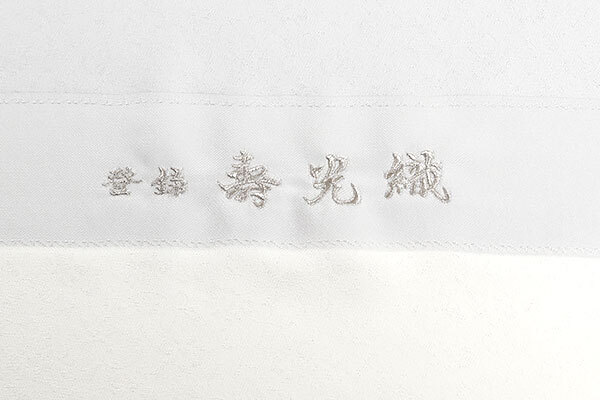 登録 寿光織